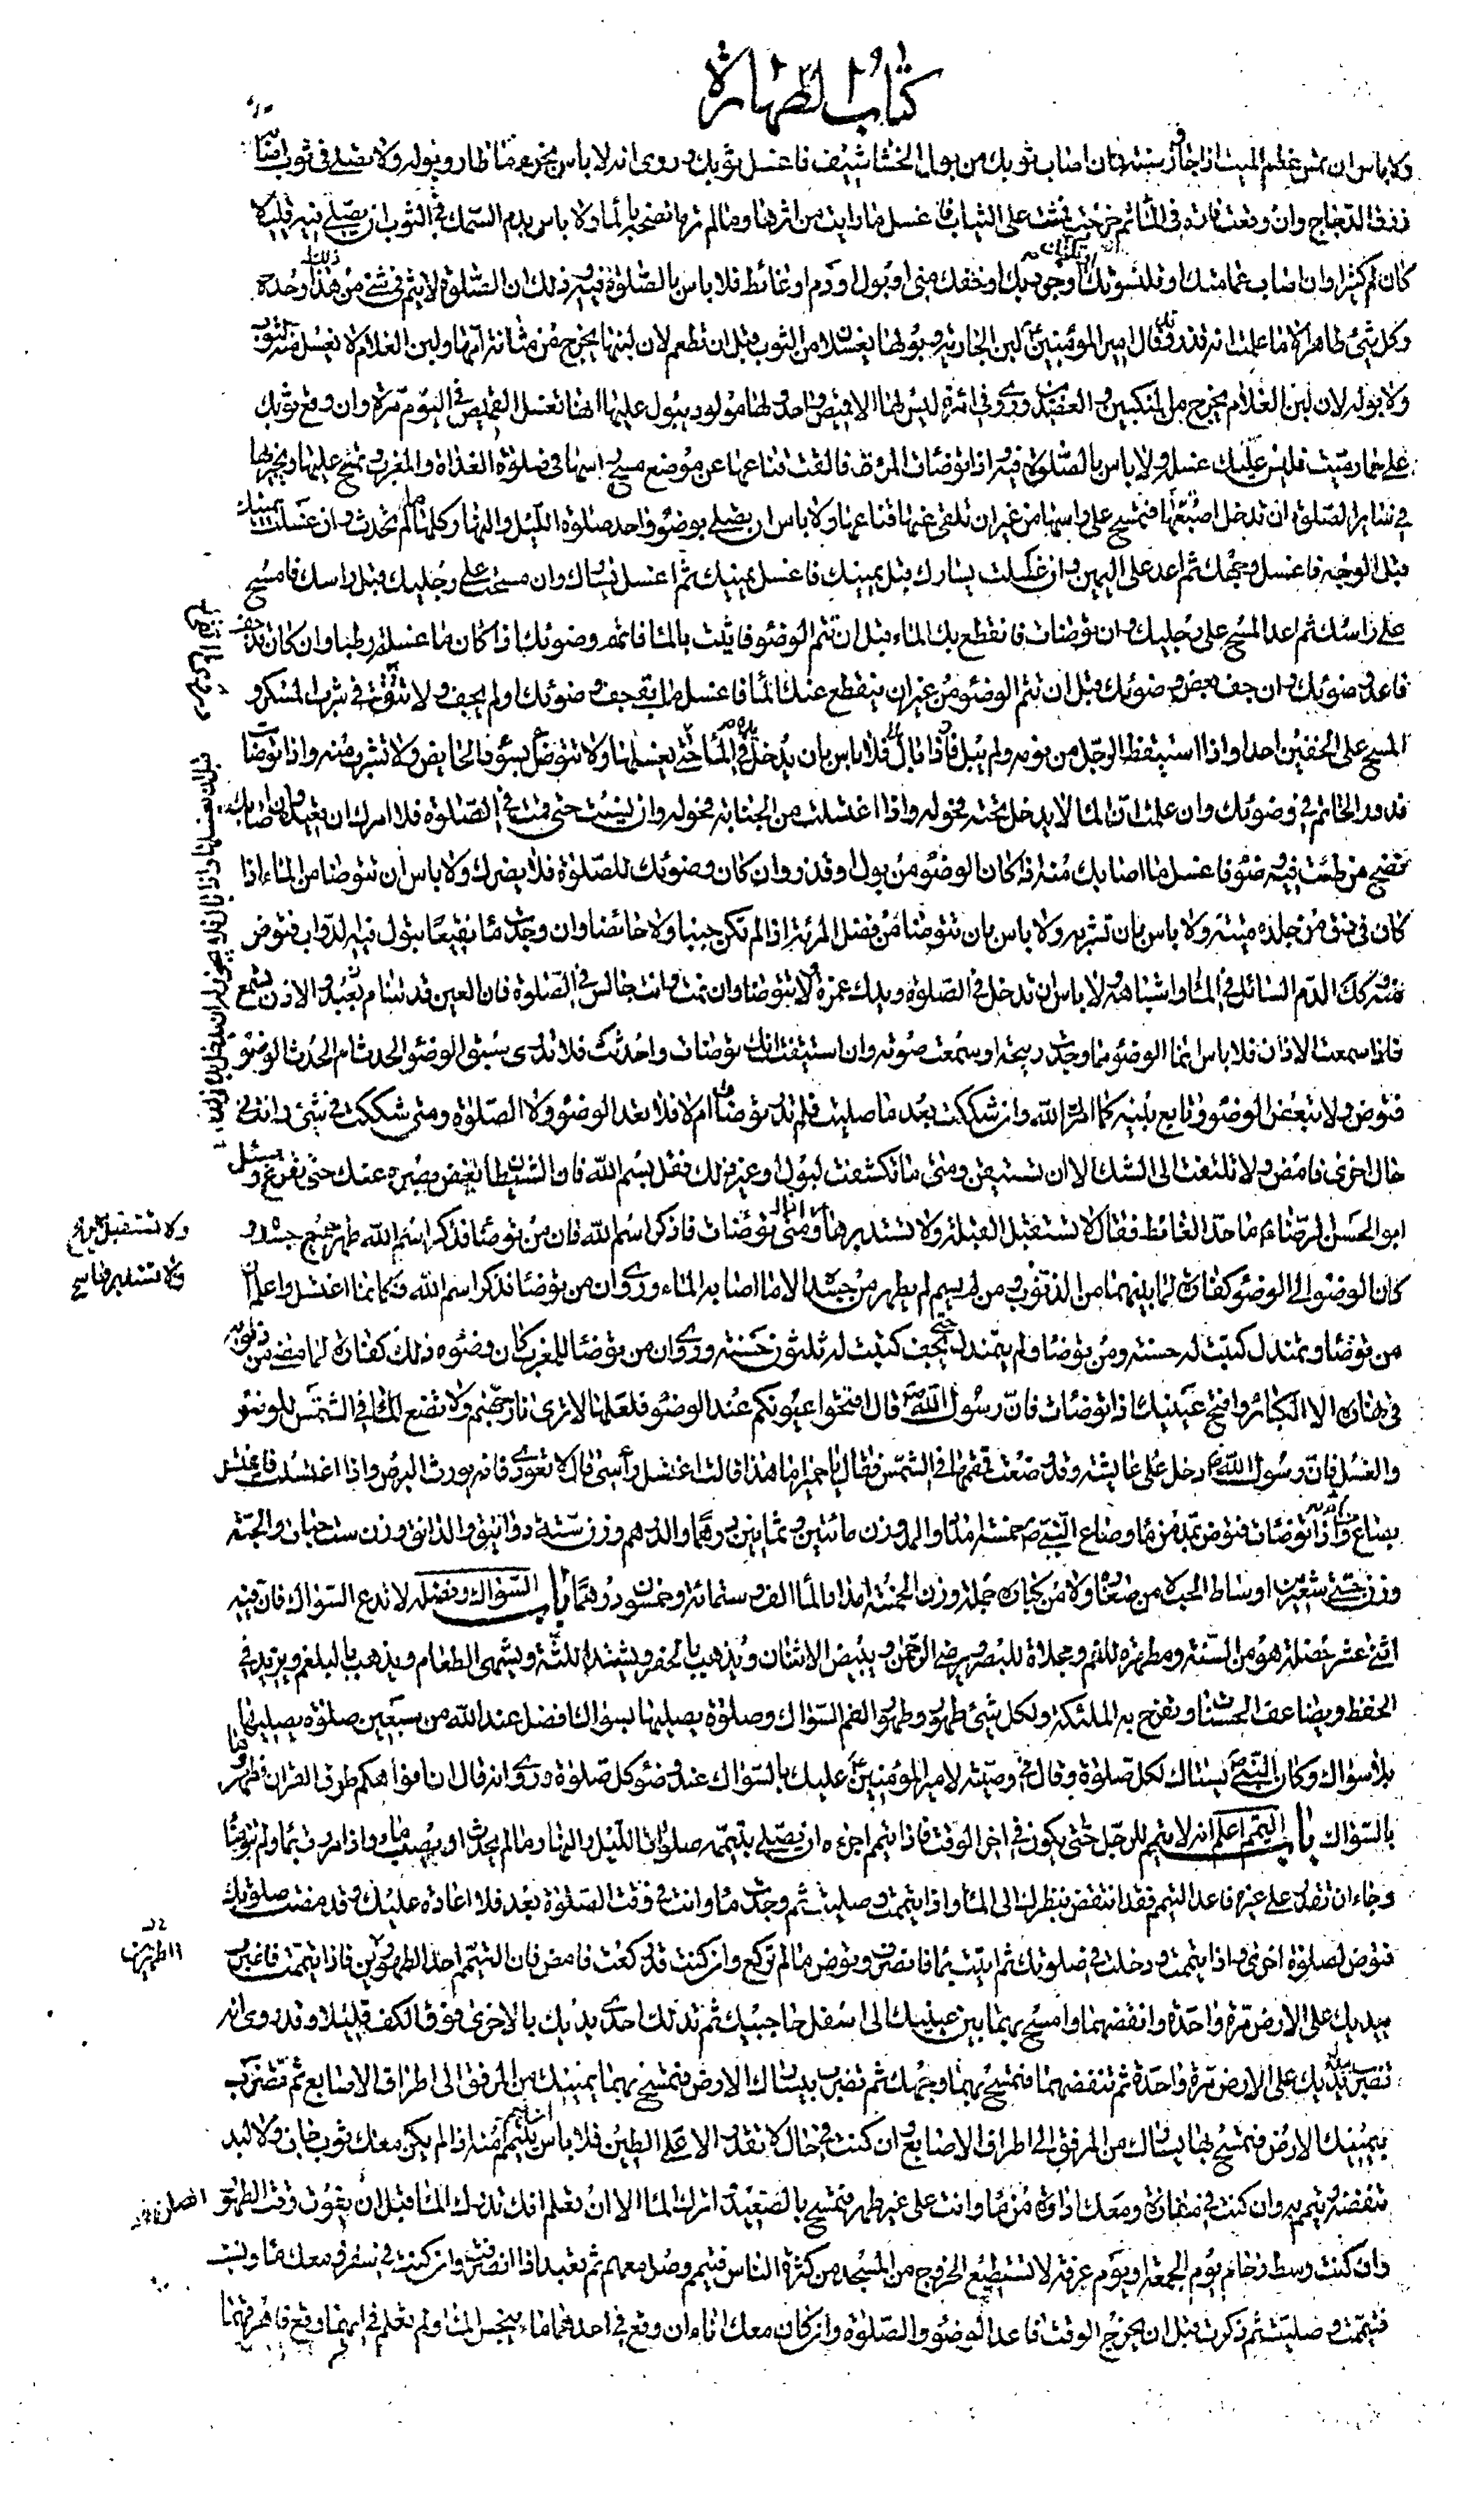 كتاب الطهارة
ولا باس ان تمس عظم الميت اذا جاز سنة فان اصاب ثوبك من بول الخشاشيف فاغسل ثوبك وروى انه لا باس بخرء ما طار وبوله ولا تصل في ثوب اصابه
ذرق الدجاج وان وقعت فارة في الماء ثم خرجت فمشت على الثياب فاغسل ما رايت من اثرها وما لم تره انضحه بالماء ولا باس بدم السمك في الثوب ان تصلي فيه قليلا
كان ام كثيرا وان اصاب عمامتك او قلنسوتك او تكتك او جوربك او خفك مني او بول او دم او غائط فلا باس بالصلوة فيه وذلك ان الصلوة لا تتم في شئ من هذا وحده
وكل شئ طاهر الا ما علمت انه قذر وقال امير المؤمنين لبن الجارية وبولها يغسلان من الثوب قبل ان تطعم لان لبنها يخرج من مثانة امها ولبن الغلام لا يغسل منه الثوب
ولا بوله لان لبن الغلام يخرج من المنكبين والعضدين وروى في امرئة ليس لها الا قميص واحد ولها مولود يبول عليها انها تغسل القميص في اليوم مرة وان وقع ثوبك
على حمار ميت فليس عليك غسله ولا باس بالصلوة فيه اذا توضات المرئة فالقت قناعها عن موضع مسح راسها في صلوة الغداة والمغرب وتمسح عليها ويجزيها
في سائر الصلوة ان تدخل اصبعها فتمسح على راسها من غير ان تلقى عنها قناعها ولا باس ان يصلي بوضوء واحد صلوة الليل والنهار كلها ما لم تحدث وان غسلت يمينك
قبل الوجه فاغسل وجهك ثم اعد على اليمين وان غسلت يسارك قبل يمينك فاغسل يمينك ثم اغسل يسارك وان مسحت على رجليك قبل راسك فامسح
على راسك ثم اعد المسح على رجليك وان توضات فانقطع بك الماء قبل ان تتم الوضوء فاتيت بالماء فاتمم وضوئك اذا كان ما غسلته رطبا وان كان قد جف
فاعد وضوئك وان جف بعض وضوئك قبل ان تتم الوضوء من غير ان ينقطع عنك الماء فاغسل ما بقى جف وضوئك او لم يجف ولا تتق في شرب المسكر و
المسح على الخفين احدا واذا استيقظ الرجل من نومه ولم يبل فلا باس بان يدخل يده في الماء حتى يغسلها ولا تتوض بسؤر الحايض ولا تشرب منه واذا توضات
فدور الخاتم في وضوئك وان علمت ان الماء لا يدخل تحته فحوله واذا اغتسلت من الجنابة فحوله وان نسيت حتى قمت في الصلوة فلا امرك ان تعيد وان اصابك
نضح من طشت فيه وضوء فاغسل ما اصابك منه اذا كان الوضوء من بول او قذر وان كان وضوئك للصلوة فلا يضرك ولا باس ان تتوضا من الماء اذا
كان في زق من جلدة ميتة ولا باس بان تشربه ولا باس بان تتوضا من فضل المرئة اذا لم تكن جنبا ولا حائضا وان وجدت ماء نقيعا تبول فيه الدواب فتوض
منه وكذلك الدم السائل في الماء واشباهه ولا باس ان تدخل في الصلوة ويدك غمرة ولا تتوضا وان نمت وانت جالس في الصلوة فان العين قد تنام بعبد والاذن تسمع
فاذا سمعت الاذان فلا باس انما الوضوء مما وجدت ريحه او سمعت صوته وان استيقنت انك توضات واحدثت فلا تدرى سبق الوضوء الحدث ام الحدث الوضوء
فتوض ولا تبعض الوضوء وتابع بينه كما امر الله وان شككت بعد ما صليت فلم تدر توضات ام لا فلا تعد الوضوء ولا الصلوة ومتى شككت في شئ وانت في
حال اخرى فامض ولا تلتفت الى الشك الا ان تستيقن ومتى ما تكشفت لبول او غير ذلك فقل بسم الله فان الشيطان يغض بصره عنك حتى تفرغ وسئل
ابو الحسن الرضا ما حد الغائط فقال لا تستقبل القبلة ولا تستدبرها ومتى توضات فاذكر اسم الله فان من توضا فذكر اسم الله طهر جميع جسده و
كان الوضوء الى الوضوء كفارة لما بينهما من الذنوب ومن لم يسم لم يطهر من جسده الا ما اصابه الماء وروى ان من توضا فذكر اسم الله فكانما اغتسل واعلم ان
من توضا وتمندل كتبت له حسنة ومن توضا ولم يتمندل حتى يجف كتبت له ثلثون حسنة وروى ان من توضا للمغرب كان وضوئه ذلك كفارة لما مضى من ذنوبه
في نهاره الا الكبائر وافتح عينيك اذا توضات فان رسول الله قال افتحوا عيونكم عند الوضوء فلعلها لا ترى نار جهنم ولا تضع الماء في الشمس للوضوء
والغسل فان رسول الله دخل على عايشة وقد وضعت قمقمها في الشمس فقال يا حميرا ما هذا قالت اغتسل راسى قال لا تعودى فانه يورث البرص واذا اغتسلت فاغتسل
بصاع واذا توضات فتوض بمد من ماء وصاع النبي خمسة امداد والمد وزن مائتين وثمانين درهما والدرهم وزن ستة دوانيق والدانق وزن ست حبات والحبة
وزن حبتى شعير من اوساط الحب لا من صغاره ولا من كباره جملة وزن الخمسة امداد الماء الف وستمائة وخمسون درهما باب السواك وفضله لا تدع السواك فان فيه
اثنى عشر خصلة هو من السنة ومطهرة للفم ومجلاة للبصر ويرضى الرحمن ويبيض الاسنان ويذهب بالحفر ويشد اللثة ويشهى الطعام ويذهب بالبلغم ويزيد في
الحفظ ويضاعف الحسنات وتفرح به الملئكة ولكل شئ طهور وطهور الفم السواك وصلوة يصليها بسواك افضل عند الله من سبعين صلوة يصليها
بلا سواك وكان النبي يستاك لكل صلوة وقال في وصيته لامير المؤمنين عليك بالسواك عند وضوء كل صلوة وروى انه قال ان افواهكم طرق القران فطهروها
بالسواك باب التيمم اعلم انه لا تيمم للرجل حتى يكون في اخر الوقت فاذا تيمم اجزءه ان يصلي بتيممه صلوات الليل والنهار ما لم يحدث او يصب ماء واذا مررت بماء ولم تتوضا
وجاء ان تقدر على غيره فاعد التيمم فقد انتقض بنظرك الى الماء واذا تيممت وصليت ثم وجدت ماء وانت في وقت الصلوة بعد فلا اعادة عليك وقد مضت صلوتك
فتوض لصلوة اخرى واذا تيممت ودخلت في صلوتك ثم اتيت بماء فانصرف وتوض ما لم تركع وان كنت قد ركعت فامض فان التيمم احد الطهورين فاذا تيممت فاضرب
بيديك على الارض مرة واحدة وانفضهما وامسح بهما بين عينيك الى اسفل حاجبيك ثم تدلك احدى يديك بالاخرى فوق الكف قليلا وقد روى انه
تضرب بيديك على الارض مرة واحدة ثم تنفضهما فتمسح بهما وجهك ثم تضرب بيسارك الارض فتمسح بها يمينك من المرفق الى اطراف الاصابع ثم تضرب
بيمينك الارض فتمسح بها يسارك من المرفق الى اطراف الاصابع وان كنت في حال لا تقدر الا على الطين فلا باس ان تتيمم منه اذا لم يكن معك ثوب جاف ولا لبد
تنفضه وتيمم به وان كنت في مفازة ومعك اداوة من ماء وانت على غير طهر فتمسح بالصعيد واترك الماء الا ان تعلم انك تدرك الماء قبل ان يفوت وقت الطهور
وان كنت وسط زحام يوم الجمعة او يوم عرفة لا تستطيع الخروج من المسجد من كثرة الناس فتيمم وصل معهم ثم تعيد اذا انصرفت وان كنت في سفر ومعك ماء ونسيت
فتيممت وصليت ثم ذكرت قبل ان يخرج الوقت فاعد الوضوء والصلوة وان كان معك اناءان وقع في احدهما ما ينجس الماء ولم تعلم في ايهما وقع فاهرقهما
ولا تستقبل الريح
ولا تستدبرها